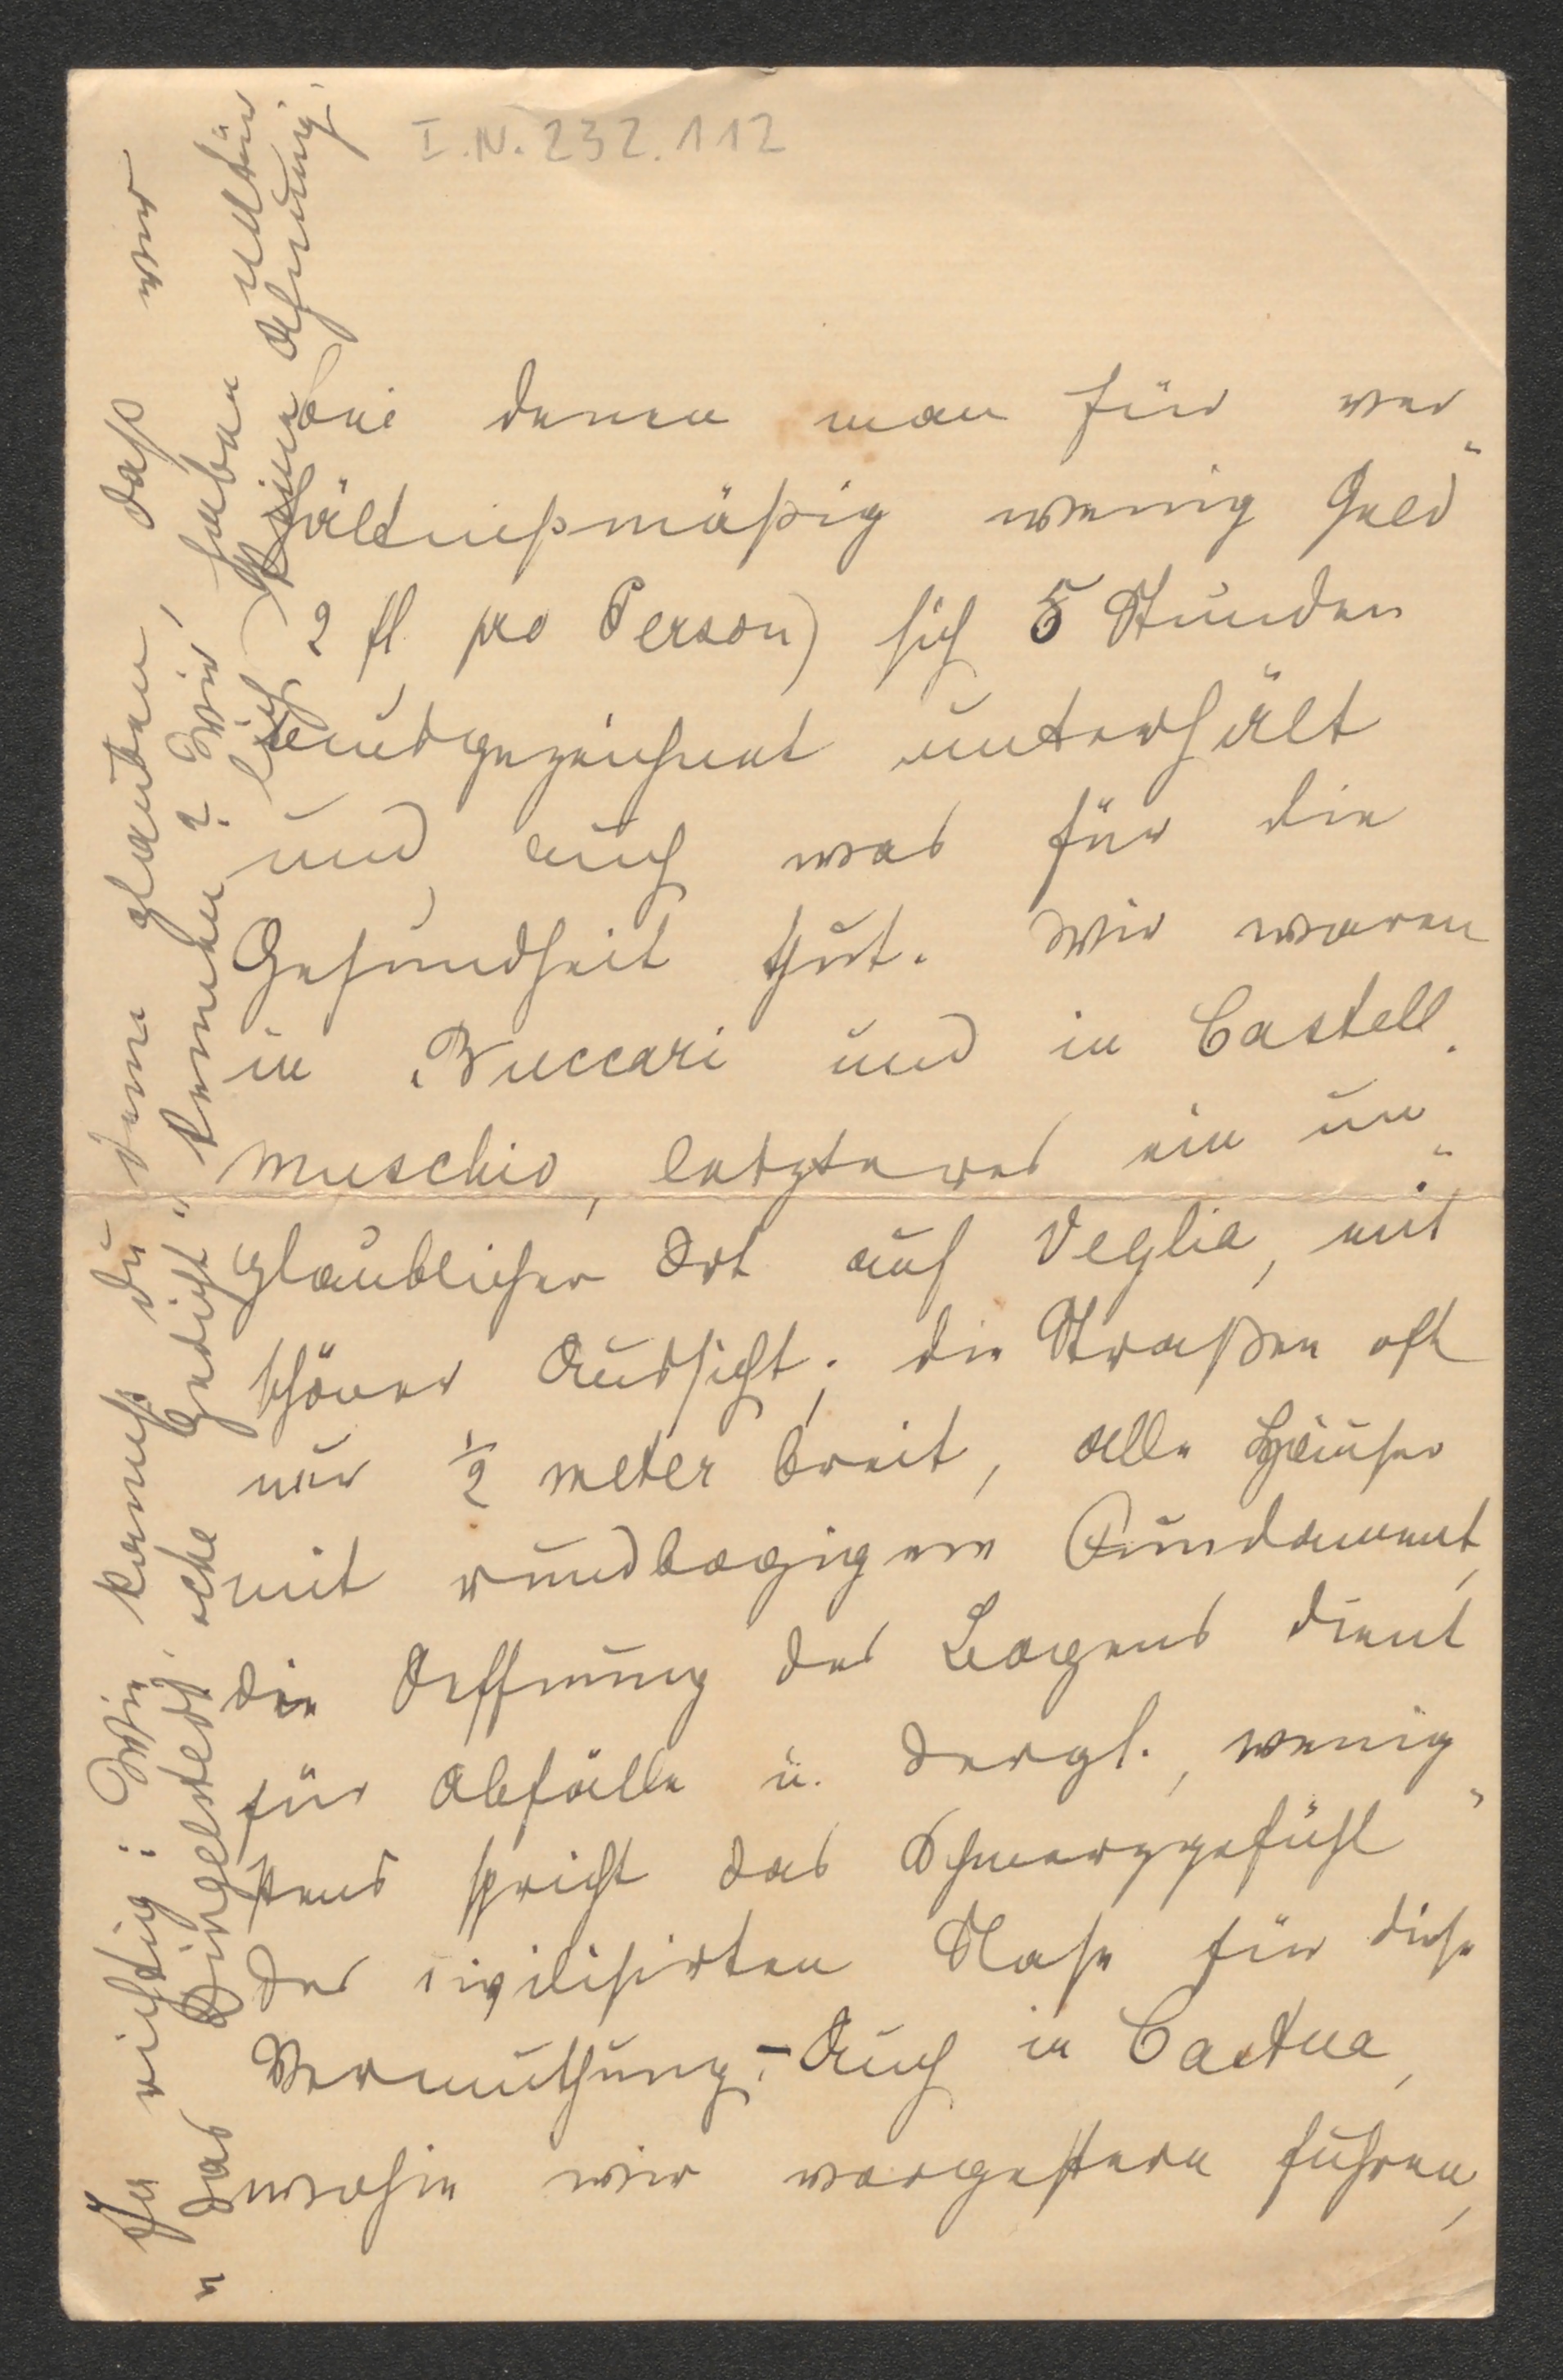 I.N. 232.112
bei denen man für ver„
hältnißmäßig wenig Geld
(2 fl pro Person) sich 5 Stunden
ausgezeichnet unterhält
und auch was für die
Gesundheit thut. Wir waren
in Buccari und in Castell.
muschio, letzteres ein un„
glaublicher Ort auf Veglia, mit
schöner Aussicht; die Straßen oft
nur ½ Meter breit, alle Häuser
mit rundbogigem Fundament,
die Oeffnung des Bogens dient
für Abfälle u. dergl., wenig„
stens spricht das Schmerzgefühl
der civilisirten Nase für diese
Vermuthung. – Auch in Castua,
wohin wir vorgestern fuhren,
Ja richtig: Wie kannst du denn glauben, daß wir
„das Dingelstedt'sche Gedicht“ kennen? Wir haben natür
lich keine Ahnung.